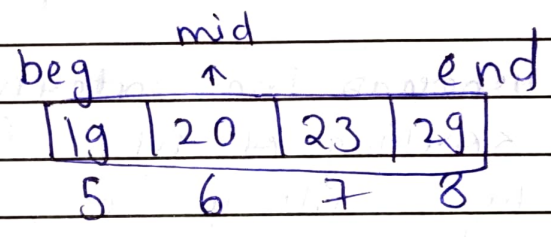 mid
beg ↑ end
19 20 23 29
5 6 7 8